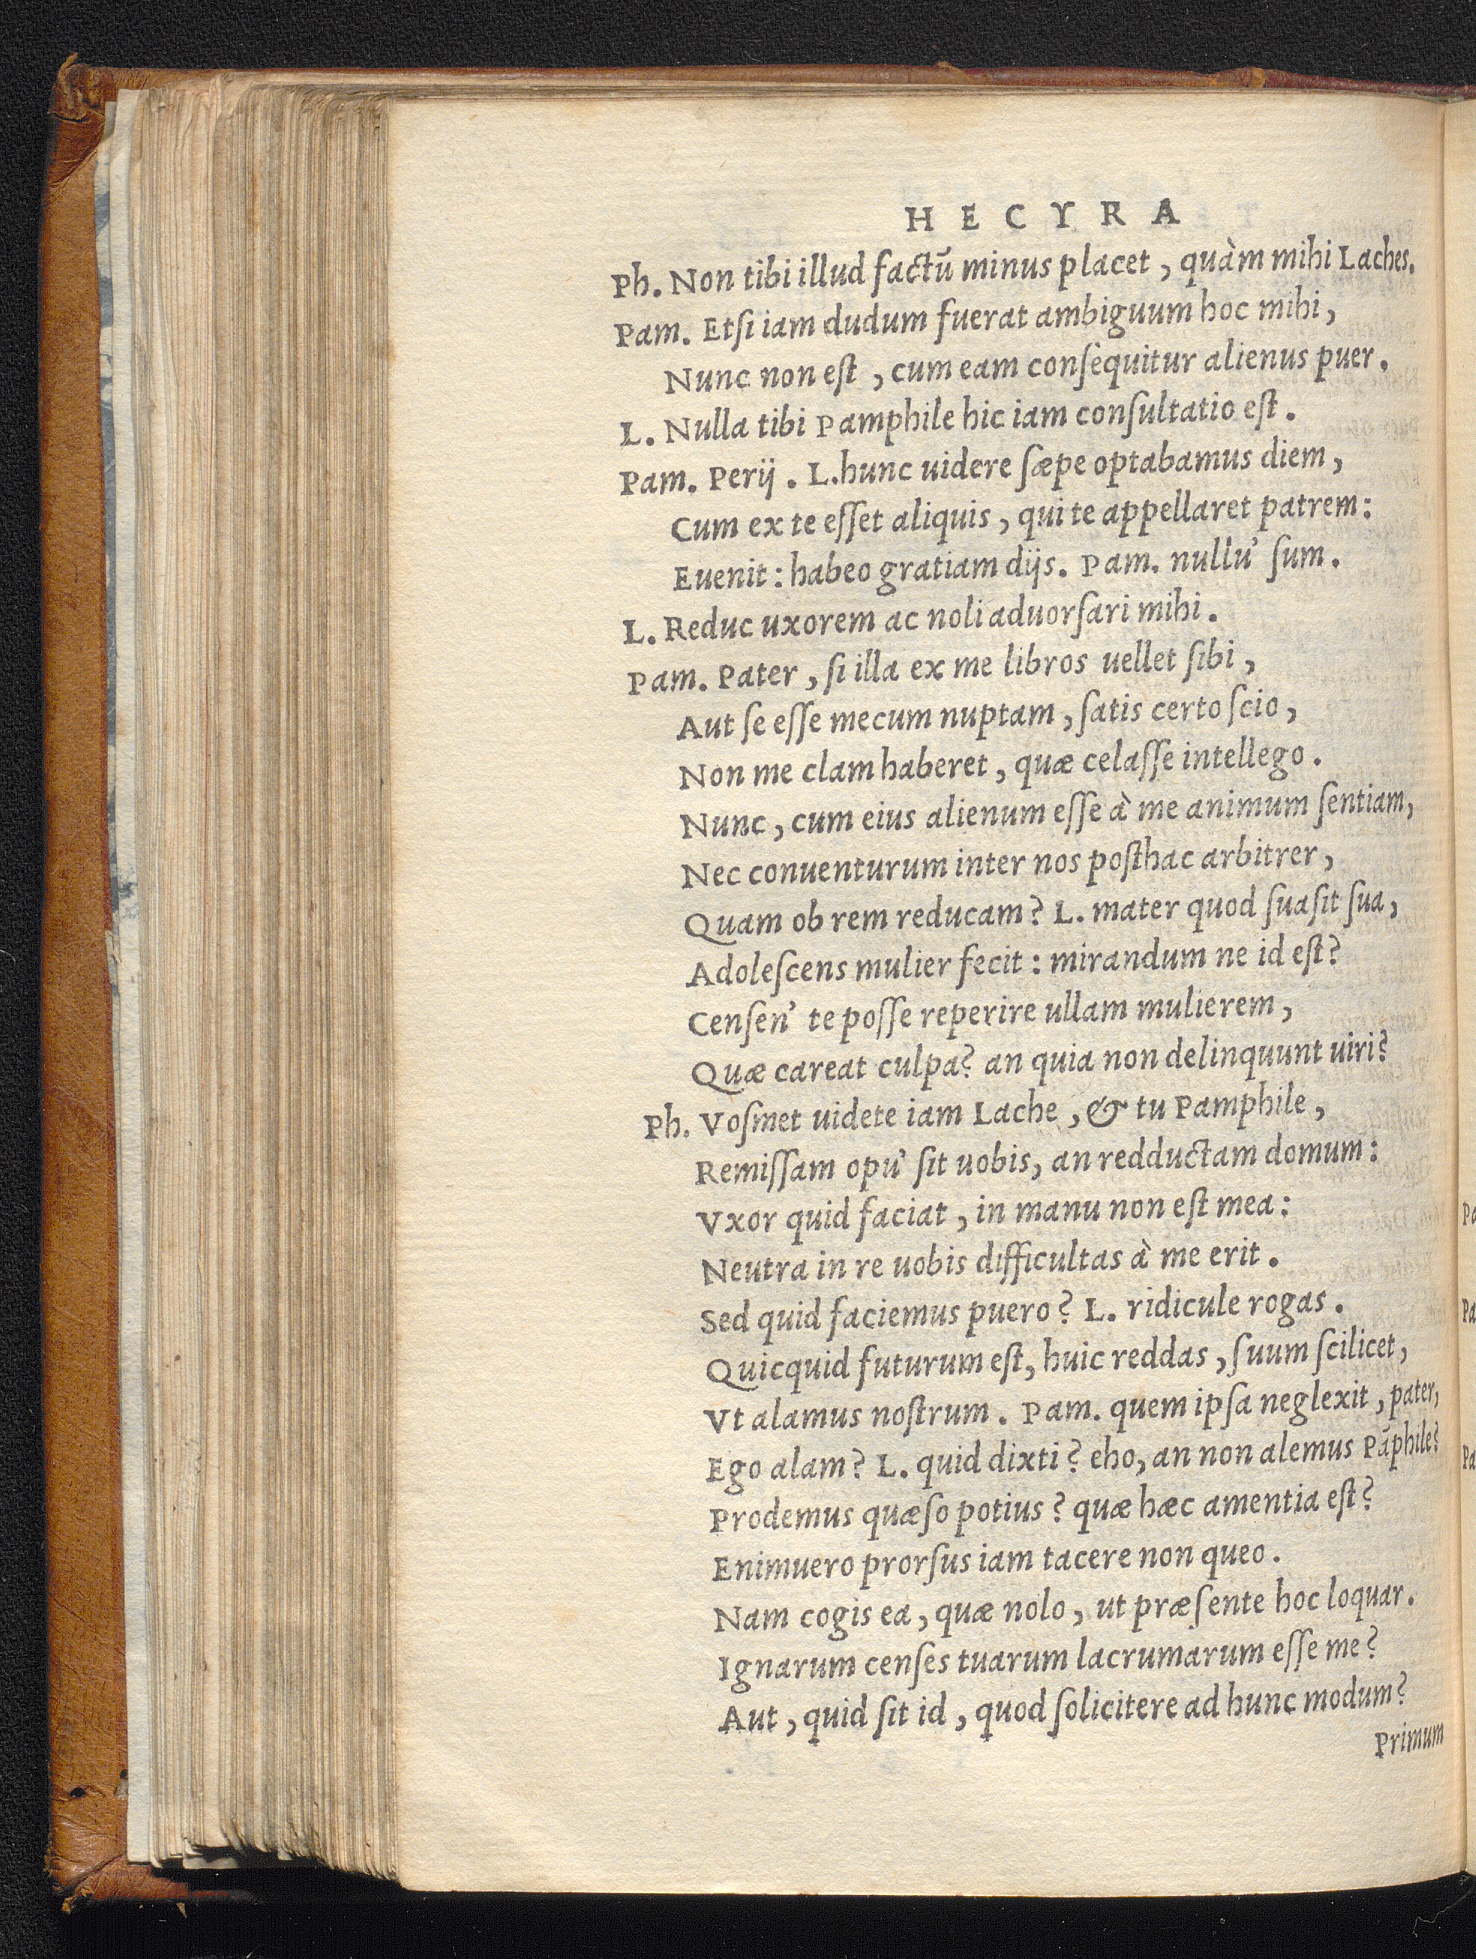 HECYRA
Ph. Non tibi illud factũ minus placet, quàm mihi Laches.
Pam. Etſi iam dudum fuerat ambiguum hoc mihi,
Nunc non eſt, cum eam conſequitur alienus puer.
L. Nulla tibi Pamphile hic iam conſultatio eſt.
Pam. Perij. L. hunc uidere ſæpe optabamus diem,
Cum ex te eſſet aliquis, qui te appellaret patrem:
Euenit: habeo gratiam dijs. Pam. nullu' ſum.
L. Reduc uxorem ac noli aduorſari mihi.
Pam. Pater, ſi illa ex me libros uellet ſibi,
Aut ſe eſſe mecum nuptam, ſatis certo ſcio,
Non me clam haberet, quæ celaſſe intellego.
Nunc, cum eius alienum eſſe à me animum ſentiam,
Nec conuenturum inter nos poſthac arbitrer,
Quam ob rem reducam? L. mater quod ſuaſit ſua,
Adoleſcens mulier fecit: mirandum ne id eſt?
Cenſen' te poſſe reperire ullam mulierem,
Quæ careat culpa? an quia non delinquunt uiri?
Ph. Voſmet uidete iam Lache, & tu Pamphile,
Remiſſam opu' ſit uobis, an redductam domum:
Vxor quid faciat, in manu non eſt mea:
Neutra in re uobis difficultas à me erit.
Sed quid faciemus puero? L. ridicule rogas.
Quicquid futurum eſt, huic reddas, ſuum ſcilicet,
Vt alamus noſtrum. Pam. quem ipſa neglexit, pater,
Ego alam? L. quid dixti? eho, an non alemus Pãphile?
Prodemus quæſo potius? quæ hæc amentia eſt?
Enimuero prorſus iam tacere non queo.
Nam cogis ea, quæ nolo, ut præſente hoc loquar.
Ignarum cenſes tuarum lacrumarum eſſe me?
Aut, quid ſit id, quod ſolicitere ad hunc modum?
Primum
Pa
Pa
Pa